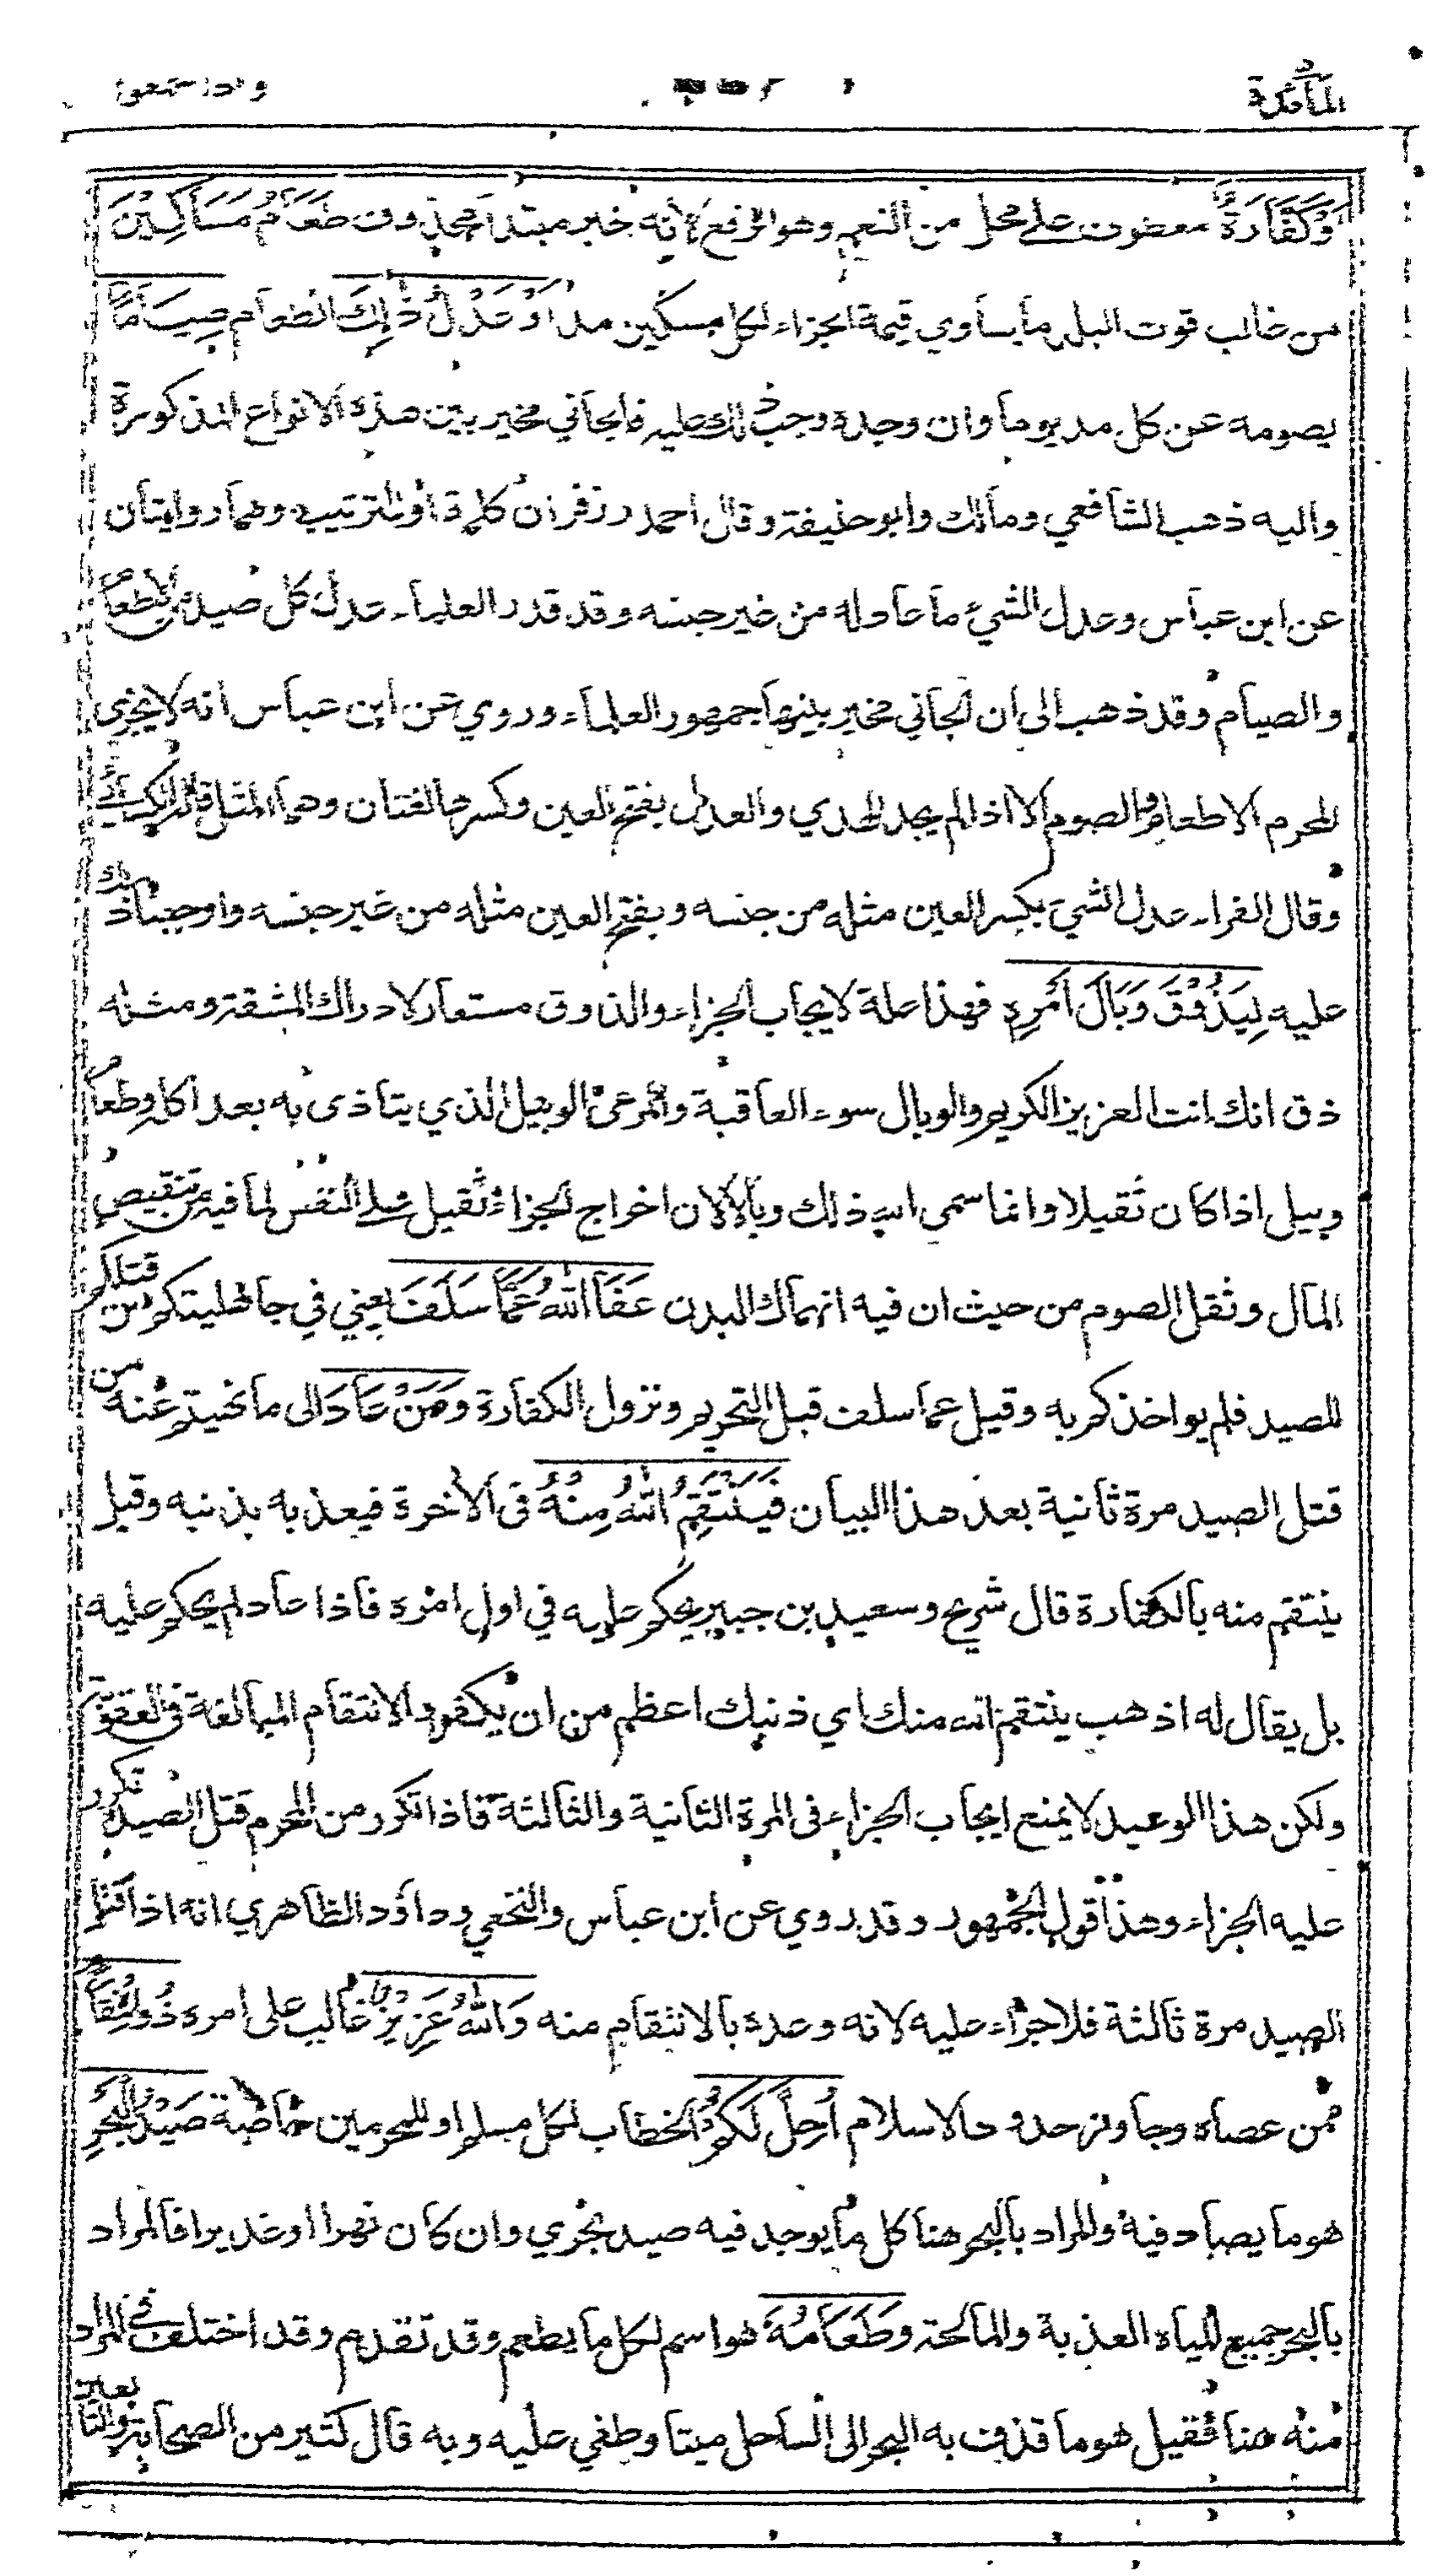 المآئدة واذا سمعوا
اَوْ كَفَّارَةٌ معطوف على محل من النعم وهو الرفع لأنه خبر مبتدأ محذوف طَعَامُ مَسَاكِيْنَ
من غالب قوت البلد ما يساوي قيمة الجزاء لكل مسكين مد اَوْ عَدْلُ ذٰلِكَ الطعام صِيَامًا
يصومه عن كل مد يوما وان وجده وجب ذلك عليه فالجاني مخير بين هذه الانواع المذكورة
واليه ذهب الشافعي ومالك وابو حنيفة وقال احمد وزفر ان كلمة أو للترتيب وهما روايتان
عن ابن عباس وعدل الشيء ما عادله من غير جنسه وقد قدر العلماء عدل كل صيد من الاطعام
والصيام وقد ذهب الى ان الجاني مخير بينها جمهور العلماء وروي عن ابن عباس انه لا يجزي
المحرم الاطعام والصوم الا اذا لم يجد الهدي والعدل بفتح العين وكسرها لغتان وهما المثل قاله الكسائي
وقال الفراء عدل الشيء بكسر العين مثله من جنسه وبفتح العين مثله من غير جنسه واوجبنا ذلك
عليه لِيَذُوْقَ وَبَالَ اَمْرِهِ فهذا علة لايجاب الجزاء والذوق مستعار لادراك المشقة ومثله
ذق انك انت العزيز الكريم والوبال سوء العاقبة والمرعى الوبيل الذي يتاذى به بعد اكله وطعام
وبيل اذا كان ثقيلا وانما سمى الله ذلك وبالا لان اخراج الجزاء ثقيل على النفس لما فيه من تنقيص
المال وثقل الصوم من حيث ان فيه انهاك البدن عَفَا اللّٰهُ عَمَّا سَلَفَ يعني في جاهليتكم من قتلكم
للصيد فلم يواخذكم به وقيل عما سلف قبل التحريم ونزول الكفارة وَمَنْ عَادَ الى ما نهيتم عنه من
قتل الصيد مرة ثانية بعد هذا البيان فَيَنْتَقِمُ اللّٰهُ مِنْهُ فى الأخرة فيعذبه بذنبه وقيل
ينتقم منه بالكفارة قال شريح وسعيد بن جبير يحكم عليه في اول امره فاذا عاد لم يحكم عليه
بل يقال له اذهب ينتقم الله منك اي ذنبك اعظم من ان يكفر والانتقام المبالغة فى العقوبة
ولكن هذا الوعيد لا يمنع ايجاب الجزاء فى المرة الثانية والثالثة فاذا تكرر من المحرم قتل الصيد تكرر
عليه الجزاء وهذا قول الجمهور وقد روي عن ابن عباس والنخعي وداؤد الظاهري انه اذا قتل
الصيد مرة ثالثة فلا جزاء عليه لانه وعده بالانتقام منه وَاللّٰهُ عَزِيْزٌ غالب على امره ذُو انْتِقَامٍ
ممن عصاه وجاوز حدود الاسلام اُحِلَّ لَكُمْ الخطاب لكل مسلم او للمحرمين خاصة صَيْدُ الْبَحْرِ
هو ما يصاد فيه والمراد بالبحر هنا كل ما يوجد فيه صيد بحري وان كان نهرا او غديرا فالمراد
بالبحر جميع المياه العذبة والمالحة وَطَعَامُهٗ هو اسم لكل ما يطعم وقد تقدم وقد اختلف في المراد
منه هنا فقيل هو ما قذف به البحر الى الساحل ميتا وطفي عليه وبه قال كثير من الصحابة والتابعين